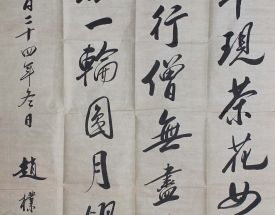 現茶花女
行僧無盡
一輪圓月
二十四年冬日 趙樸